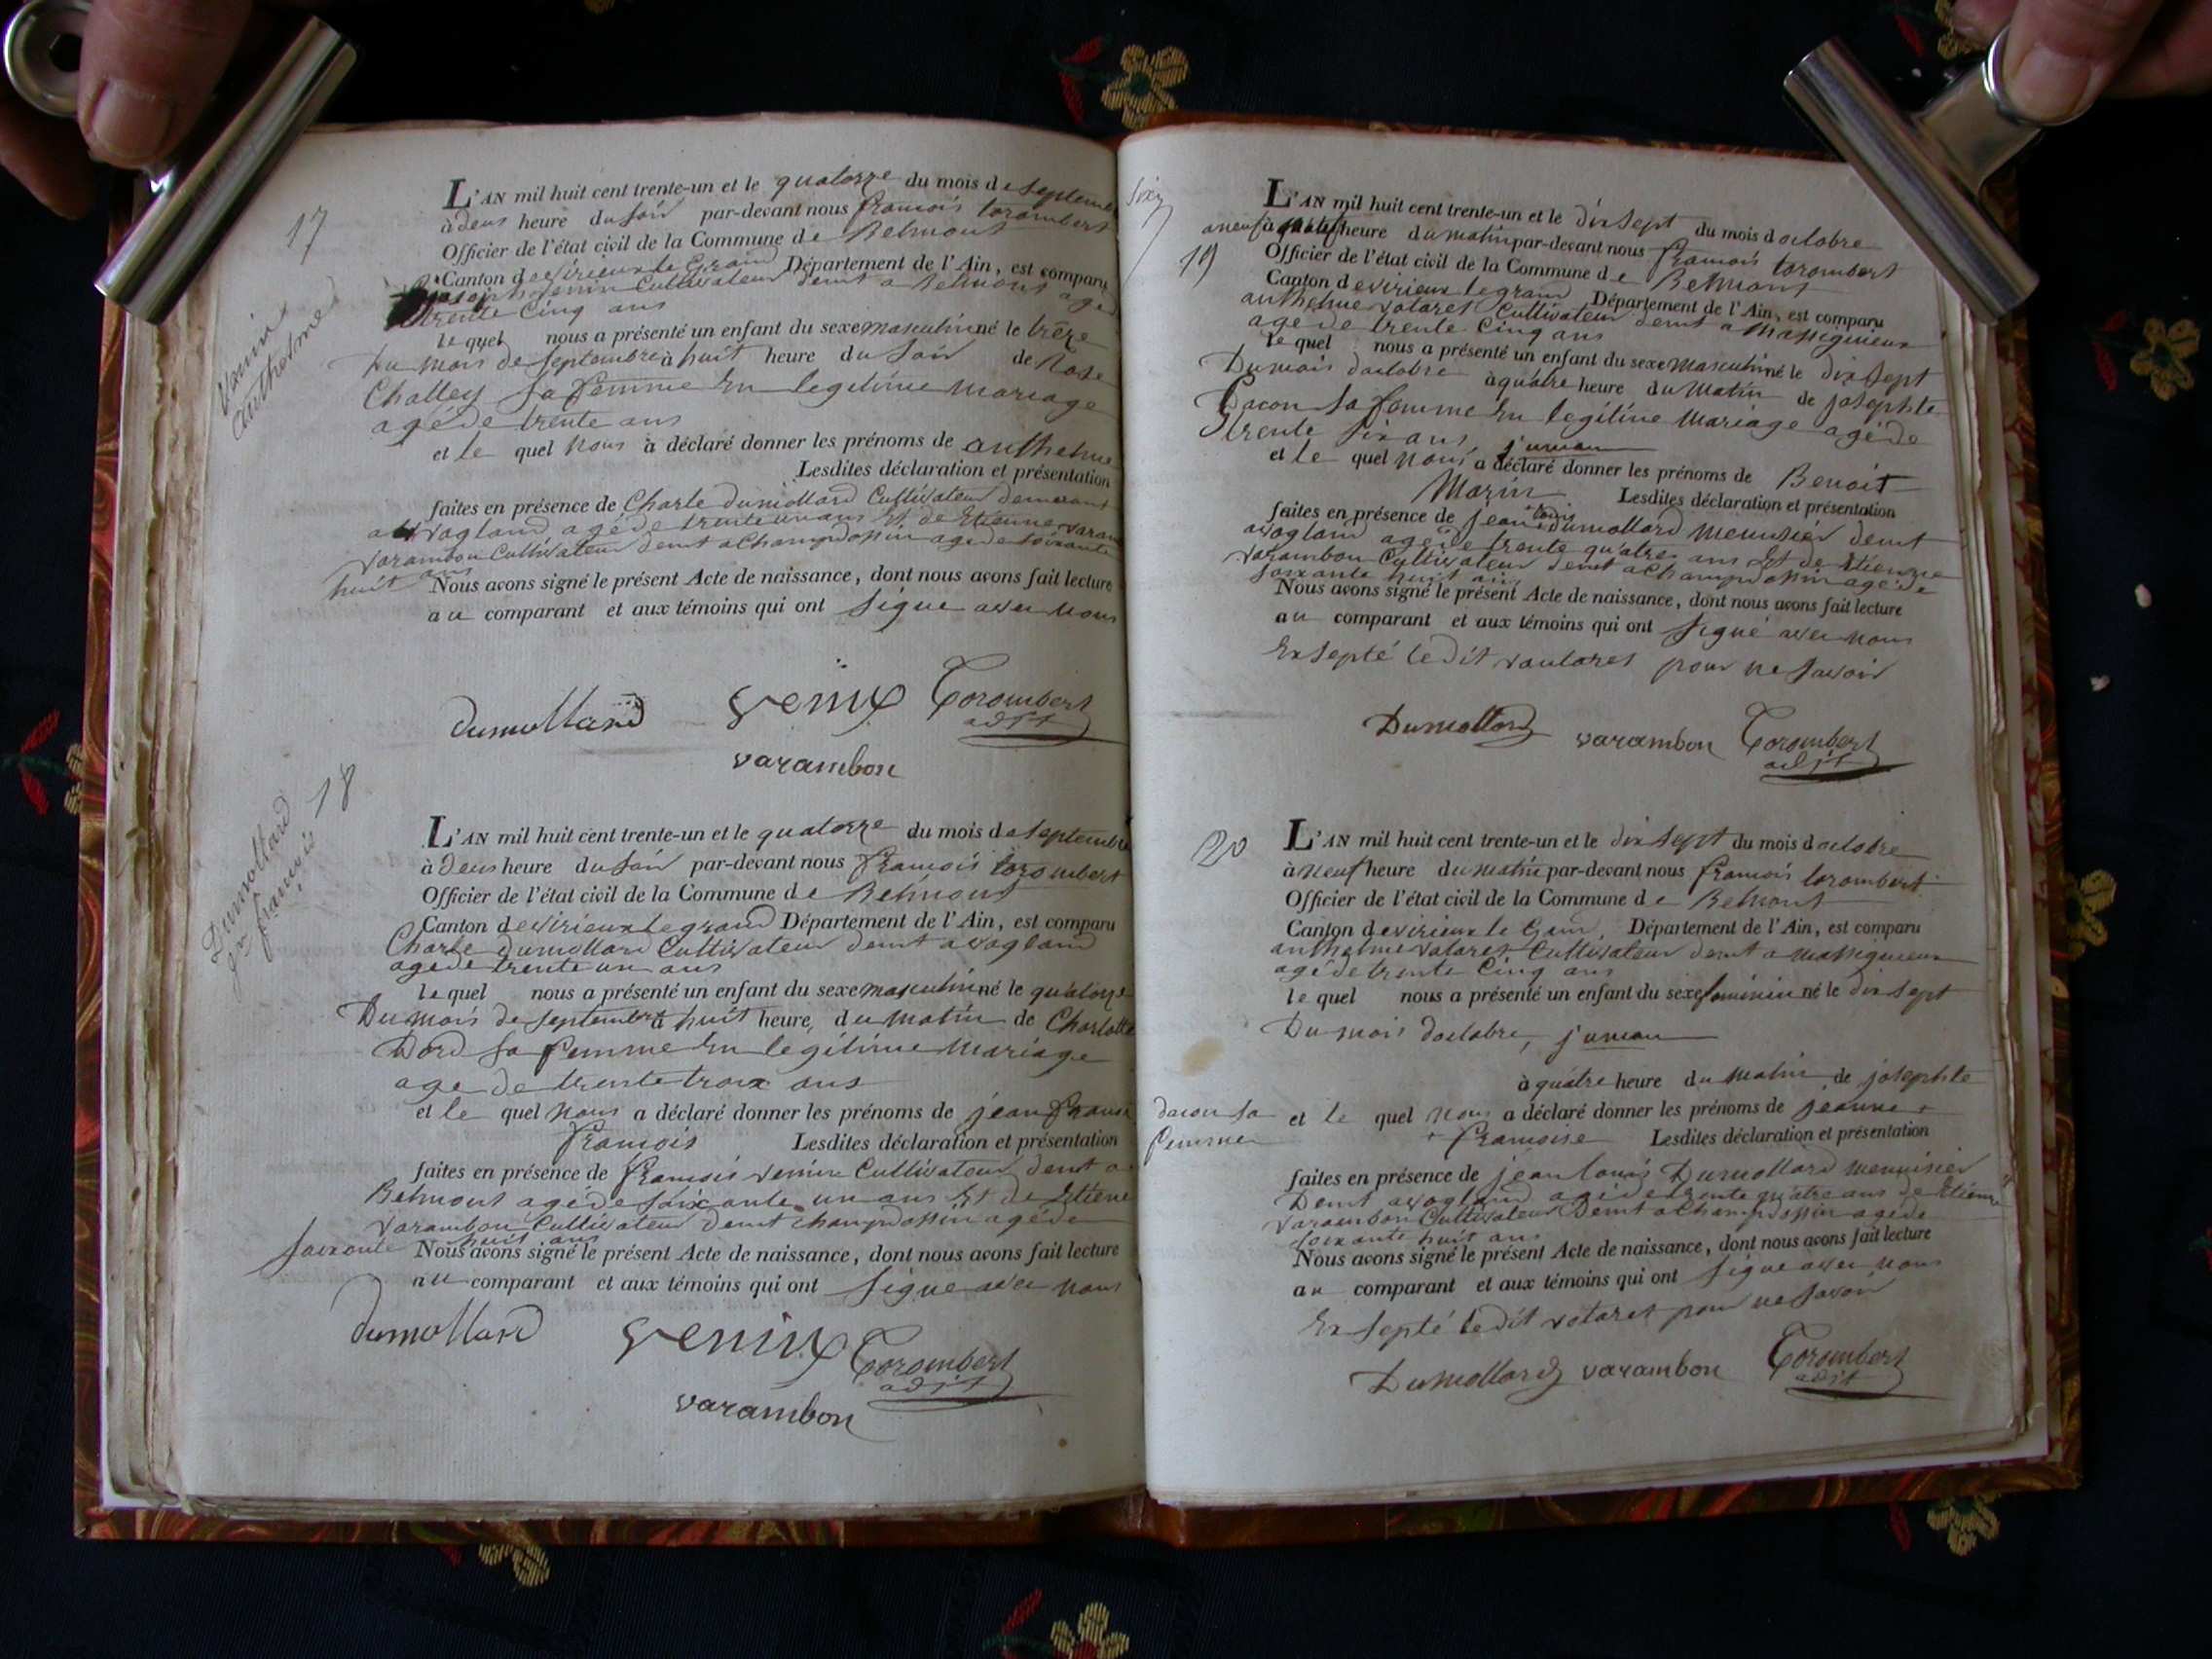 17
Venin
Anthelme
L'AN mil huit cent trente-un et le quatorze du mois de septembre
à deus heure du soir par-devant nous françois torombert
Officier de l'état civil de la Commune de Belmont
Canton de virieux le Grand Département de l'Ain, est comparu
joseph venin Cultivateur demt a Belmont agé
trente Cinq ans
le quel nous a présenté un enfant du sexe masculin né le treze
Du mois de septembre à huit heure du soir de Rose
Challey sa femme En legitime mariage
agé de trente ans
et le quel nous à déclaré donner les prénoms de anthelme
Lesdites déclaration et présentation
faites en présence de Charle dumollard Cultivateur demeurant
a vogland agé de trente un ans Et de Etienne
varambon Cultivateur demt a Champdossin agé de soixante
huit ans
Nous avons signé le présent Acte de naissance, dont nous avons fait lecture
au comparant et aux témoins qui ont signe avec nous
dumollard venin Torombert
adjt
varambon
18
Dumollard
jn françois
L'AN mil huit cent trente-un et le quatorze du mois de septembre
à deus heure du soir par-devant nous françois torombert
Officier de l'état civil de la Commune de Belmont
Canton de virieux le grand Département de l'Ain, est comparu
Charle dumollard Cultivateur demt a vogland
agé de trente un ans
le quel nous a présenté un enfant du sexe masculin né le quatorze
Du mois de septembre à huit heure, du matin de Charlotte
Dord sa femme En legitime mariage
age de trente troix ans
et le quel nous a déclaré donner les prénoms de jean
françois Lesdites déclaration et présentation
faites en présence de françois venin Cultivateur demt a
Belmont agé de soixante un ans Et de Etiene
varambon Cultivateur demt champdossin agé de
soixante huit ans
Nous avons signé le présent Acte de naissance, dont nous avons fait lecture
au comparant et aux témoins qui ont signe avec nous
dumollard venin Torombert
adjt
varambon
19
L'AN mil huit cent trente-un et le dix sept du mois d octobre
a neuf heure du matin par-devant nous françois torombert
Officier de l'état civil de la Commune de Belmont
Canton de virieux le grand Département de l'Ain, est comparu
anthelme votaret Cultivateur demt a massigneux
agé de trente Cinq ans
le quel nous a présenté un enfant du sexe masculin né le dix sept
Du mois doctobre à quatre heure du matin de josephte
Dacon sa femme En legitime mariage agé de
trente six ans, jumau
et le quel nous a déclaré donner les prénoms de Benoit
Marin Lesdites déclaration et présentation
faites en présence de jean louis dumollard menusier demt
a vogland agé de trente quatre ans Et de Etienne
varambon Cultivateur demt a Champdossin agé de
soixante huit ans
Nous avons signé le présent Acte de naissance, dont nous avons fait lecture
au comparant et aux témoins qui ont signé avec nous
Exsepté ledit vautaret pour ne savoir
Dumollard varambon Torombert
adjt
20
L'AN mil huit cent trente-un et le dix sept du mois d octobre
à neuf heure du matin par-devant nous françois torombert
Officier de l'état civil de la Commune de Belmont
Canton de virieux le Gran, Département de l'Ain, est comparu
anthelme votaret Cultivateur demt a massigneux
agé de trente Cinq ans
le quel nous a présenté un enfant du sexe féminin né le dix sept
Du mois doctobre, jumau
à quatre heure du matin de josephte
dacon sa
femme
et le quel nous a déclaré donner les prénoms de jeanne +
+ françoise Lesdites déclaration et présentation
faites en présence de jean louis Dumollard menuisier
Demt a vogland agé de trente quatre ans de Etienne
varambon Cultivateur Demt a Champdossin agé de
soixante huit ans
Nous avons signé le présent Acte de naissance, dont nous avons fait lecture
au comparant et aux témoins qui ont signe avec nous
Exsepté ledit votaret pour ne savoir
Dumollard varambon Torombert
adjt